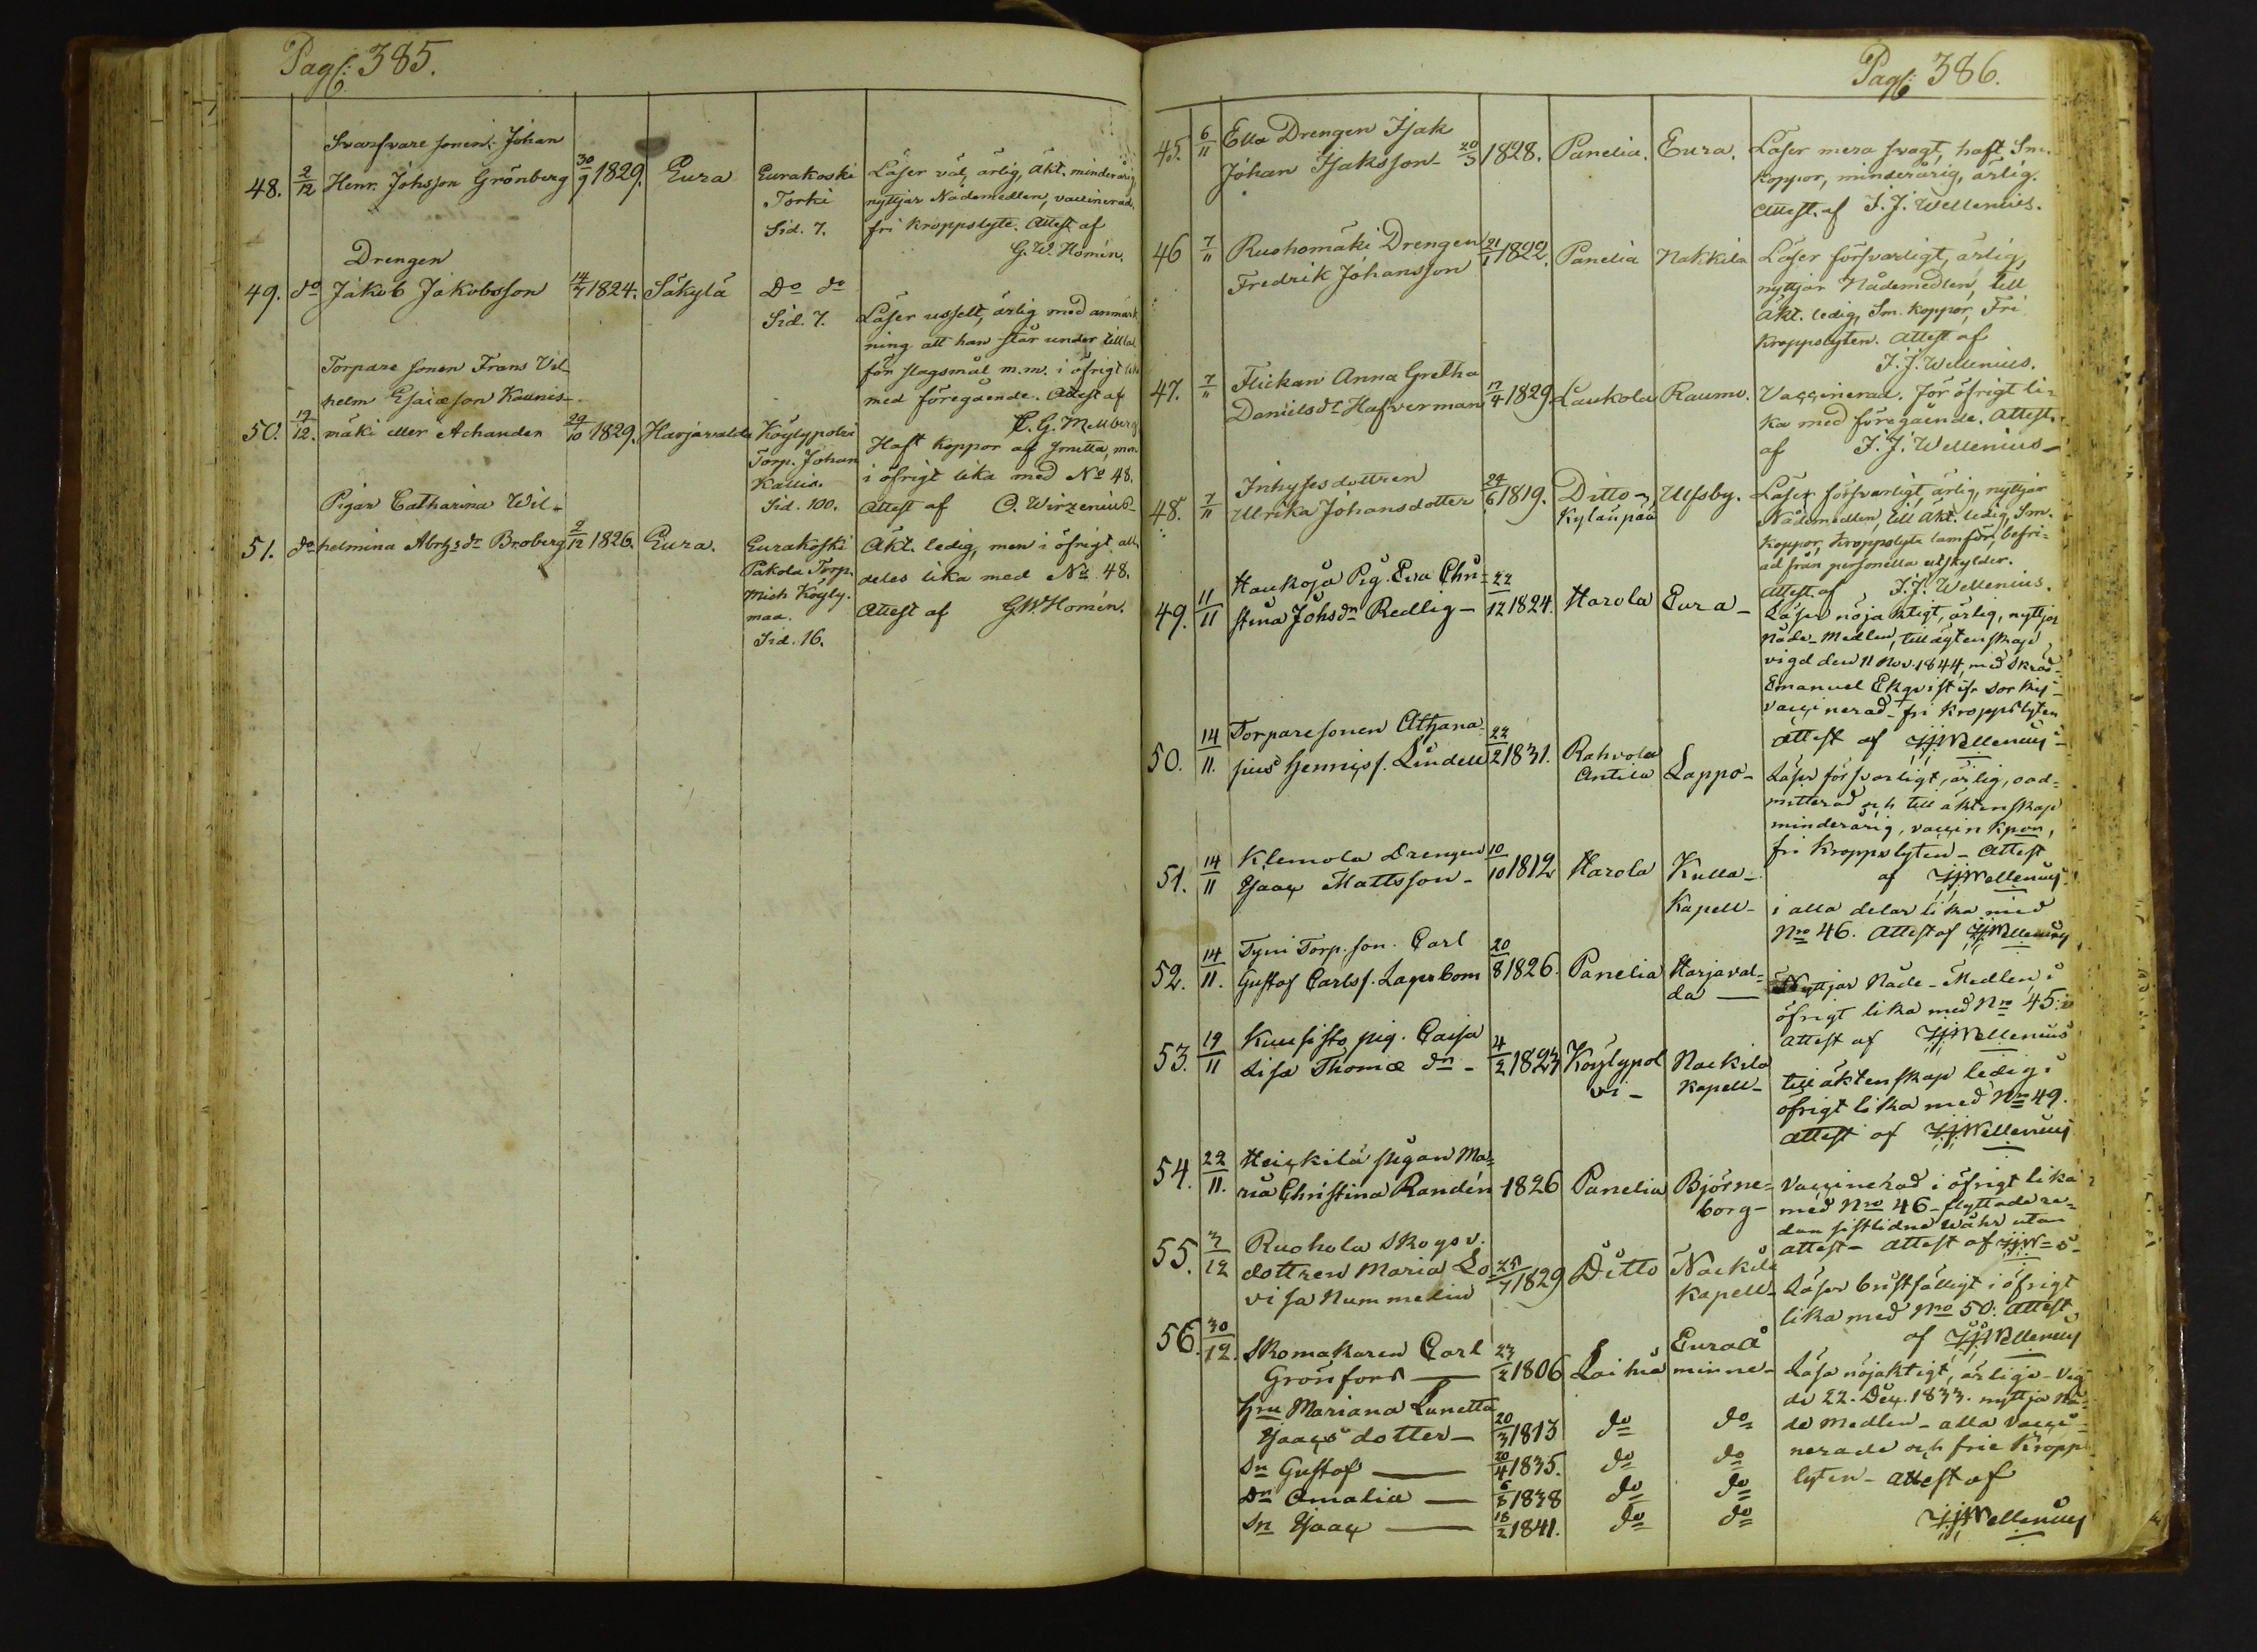 Pag: 385.
Svarfvare sonen Johan
48. 2/12 Henr. Johsson Grönberg 30/9 1829. Eura Eurakoski Läser väl, ärlig, äkt. minderårig,
Torki nyttjar Nådemedlen, vaccinerad,
Sid. 7. fri kroppslyte. Attest af
G. W. Homén.
Drengen
49. do Jakob Jakobsson 14/7 1824. Säkylä Do do
Sid. 7. Läser usselt, ärlig med anmärk
ning att han står under tilltal
för slagsmål m.m. i öfrigt lika
med föregående. Attest af
C. G. Mellberg
Torpare sonen Frans Vil
helm Esaiæson Kaunis
50. 12/12. mäki eller Achander 29/10 1829. Harjavalda Köylypolvi Haft koppor af smitta, m.m.
Torp. Johan i öfrigt lika med No 48.
Kallio.
Sid. 100. Attest af O. Wirzenius
Pigan Catharina Wil
51. do helmina Abrhs dr Broberg 2/12 1826. Eura. Eurakoski Äkt. ledig, men i öfrigt all
Pakola Torp. deles lika med No 48.
Mich Köyly-
maa. Attest af G W Homén.
Sid. 16.
Pag: 386.
45. 6/11 Ella Drengen Isak
Johan Isaksson 20/3 1828. Panelia. Eura. Läser mera svagt, haft Sm.
koppor, minderårig, ärlig.
Attest. af I. J. Wellenius.
46 7/11 Ruohomäki Drengen
Fredrik Johansson 21/1 1822. Panelia Nakkila Läser försvarligt, ärlig,
nyttjar Nådemedlen, till
äkt. ledig, Sm. koppor, Fri
kroppslyten. Attest af
I. J. Wellenius.
47. 7/11 Flickan Anna Gretha
Daniels dr Hafverman 17/4 1829. Laukola Raumo. Vaccinerad. För öfrigt li-
ka med föregående. Attest.
af I. J. Wellenius
48. 7/11 Inhyses dottren
Ulrika Johansdotter 24/6 1819. Ditto Ulfsby. Läser försvarligt, ärlig, nyttjar
Kylänpää Nådemedlen, till äkt. ledig, Sm.
koppor, kroppslyte lam för, befri-
ad från personella utskylder.
Attest. af I. J. Wellenius.
49. 11/11 Haukoja Pig. Eva Chri-
stina Johs dr Redlig 22/12 1824. Harola Eura Läser nöjaktigt, ärlig, nyttjar
Nåde-Medlen, till ägtenskap
vigd den 11 Nov. 1844, med Skräd-
Emanuel Ekqvist
vaccinerad - fri kroppslyten
attest af I J Wellenius
50. 14/11. Torparesonen Athana-
sius Hennigs s. Lindell 22/2 1831. Rahvola
Antila Lappo Läser försvarligt, ärlig, oad-
mitterad och till äktenskap
minderårig, vaccin
fri kroppslyten - Attest
af I J Wellenius
51. 14/11 Klemola Drengen
Isaac Mattsson 10/10 1812 Harola Kulla
Kapell i alla delar lika med
Nro 46. Attest af I J Wellenius
52. 14/11. Tyni Torp. son. Carl
Gustaf Carls s. Lagerbom 20/8 1826. Panelia Harjaval-
da Nyttjar Nåde-Medlen, i
öfrigt lika med Nro 45.
attest af I J Wellenius
53. 19/11 Kuusisto pig. Caisa
Lisa Thomæ dr 4/2 1823 Köylypol
vi Nackila
Kapell till äktenskap ledig i
öfrigt lika med Nro 49.
attest af I J Wellenius
54. 22/11. Heickilä pigan Ma-
ria Christina Randén 1826 Panelia Björne-
borg Vaccinerad i öfrigt lika
med Nro 46 - flyttade re-
dan sistlidne Wåhr utan
attest - attest af IJW-s
55. 3/12 Ruohola Skogsv.
dottren Maria Lo
visa Nummelin 25/7 1829 Ditto Nackila
Kapell Läser bristfälligt i öfrigt
lika med Nro 50. Attest
af I J Wellenius
56. 30/12. Skomakaren Carl
Grönfors 23/2 1806 Laihia Euraå
minne Läsa nöjaktigt, ärlige - Vig-
de 22. Dec. 1833. nyttja Nå-
de Medlen - alla vacci-
nerade och frie kropp
lyten - attest af
I J Wellenius
Hru Mariana Lunetta
Isaacs dotter 20/3 1813 do do
Sn Gustaf 20/4 1835. do do
Dr Amalia 6/5 1838 do do
Sn Isaac 18/2 1841. do do